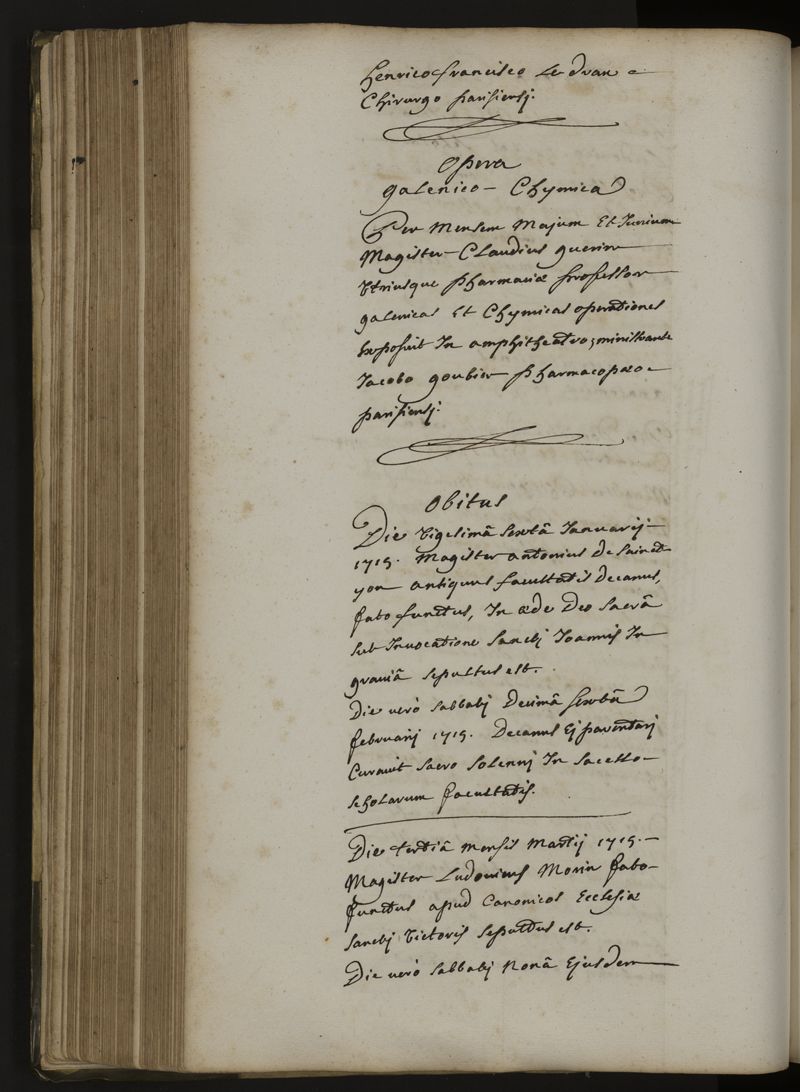 Henrico francisco Le dran
Chirurgo parisiensj.
Opera
galenico - Chymica
Per Mensem Majum Et Junium
Magister Claudius guerin
Vtriusque pharmaciæ professor
galenicas Et Chymicas operationes
Exposuit In amphitheatro, ministrante
Jacobo goubier pharmacopæo
parisiensj.
Obitus
Die Vigesimâ Sextâ Januarij
1715. Magister antonius de Sainct
yon antiquus facultatis Decanus,
fato functus, In æde Deo Sacrâ
sub Invocatione Sanctj Joannis In
graviâ sepultus est.
Die verò Sabbatj Decimâ Sextâ
februarij 1715. Decanus Ej parentarj
Curavit Sacro Solennj In Sacello
scholarum facultatis.
Die tertiâ mensis Martij 1715.
Magister Ludovicus Morin fato
functus apud Canonicos Ecclesiæ
Sanctj Victoris Sepultus est.
Die verò Sabbatj Nonâ Ejusdem